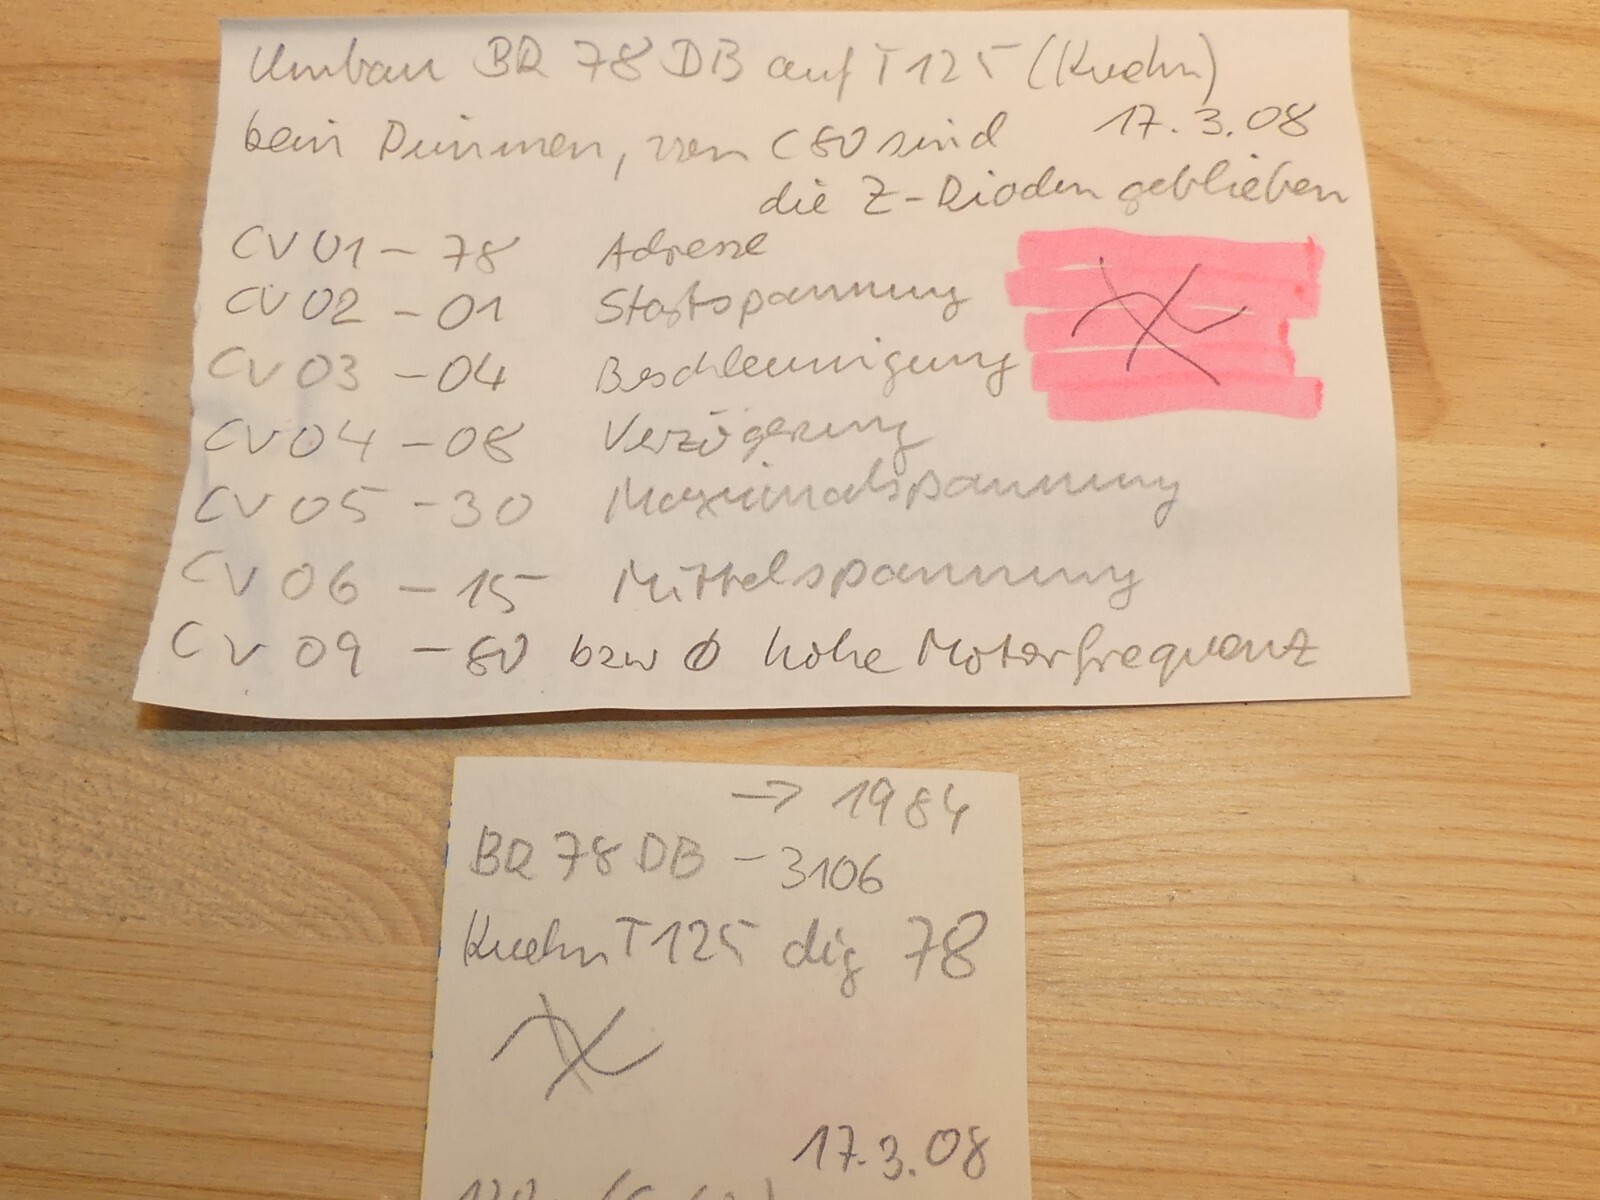 Umbau BR 78 DB auf T125 (Kuehn)
kein Dimmen, von C80 sind 17.3.08
die Z-Dioden geblieben
CV01 - 78 Adresse
CV02 - 01 Startspannung
CV03 - 04 Beschleunigung
CV04 - 08 Verzögerung
CV05 - 30 Maximalspannung
CV06 - 15 Mittelspannung
CV09 - 80 bzw 0 hohe Motorfrequenz
→ 1984
BR 78 DB - 3106
Kuehn T125 dig 78
17.3.08